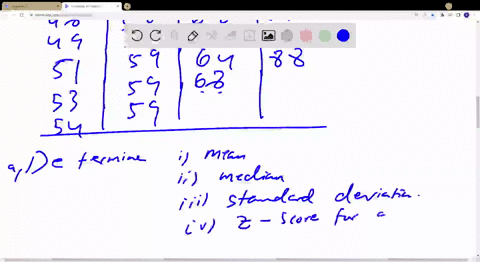 48
49
51 59 64 88
53 59 68
54 59
a, Determine i) mean
ii) median
iii) standard deviation.
iv) z-score for a